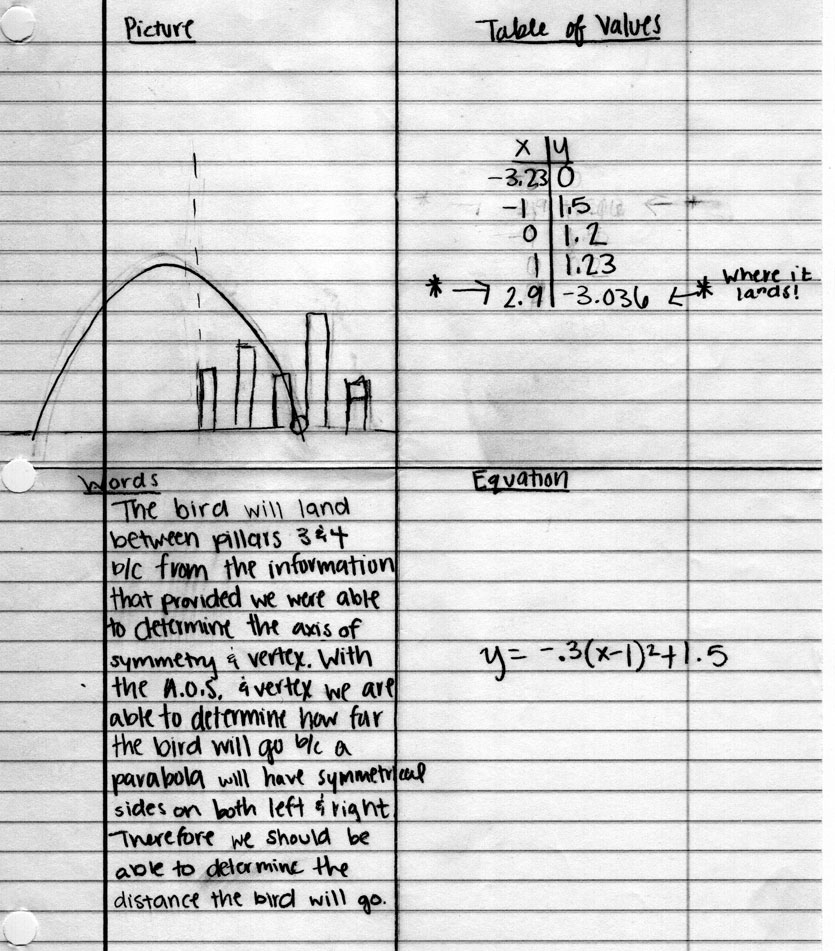 Picture
Table of Values
x | y
-3.23 | 0
-1 | 1.5
0 | 1.2
1 | 1.23
* → 2.9 | -3.036 ← * Where it
lands!
Words
The bird will land
between pillars 3 & 4
b/c from the information
that provided we were able
to determine the axis of
symmetry & vertex. With
the A.O.S. & vertex we are
able to determine how far
the bird will go b/c a
parabola will have symmetrical
sides on both left & right.
Therefore we should be
able to determine the
distance the bird will go.
Equation
y= -.3(x-1)²+1.5